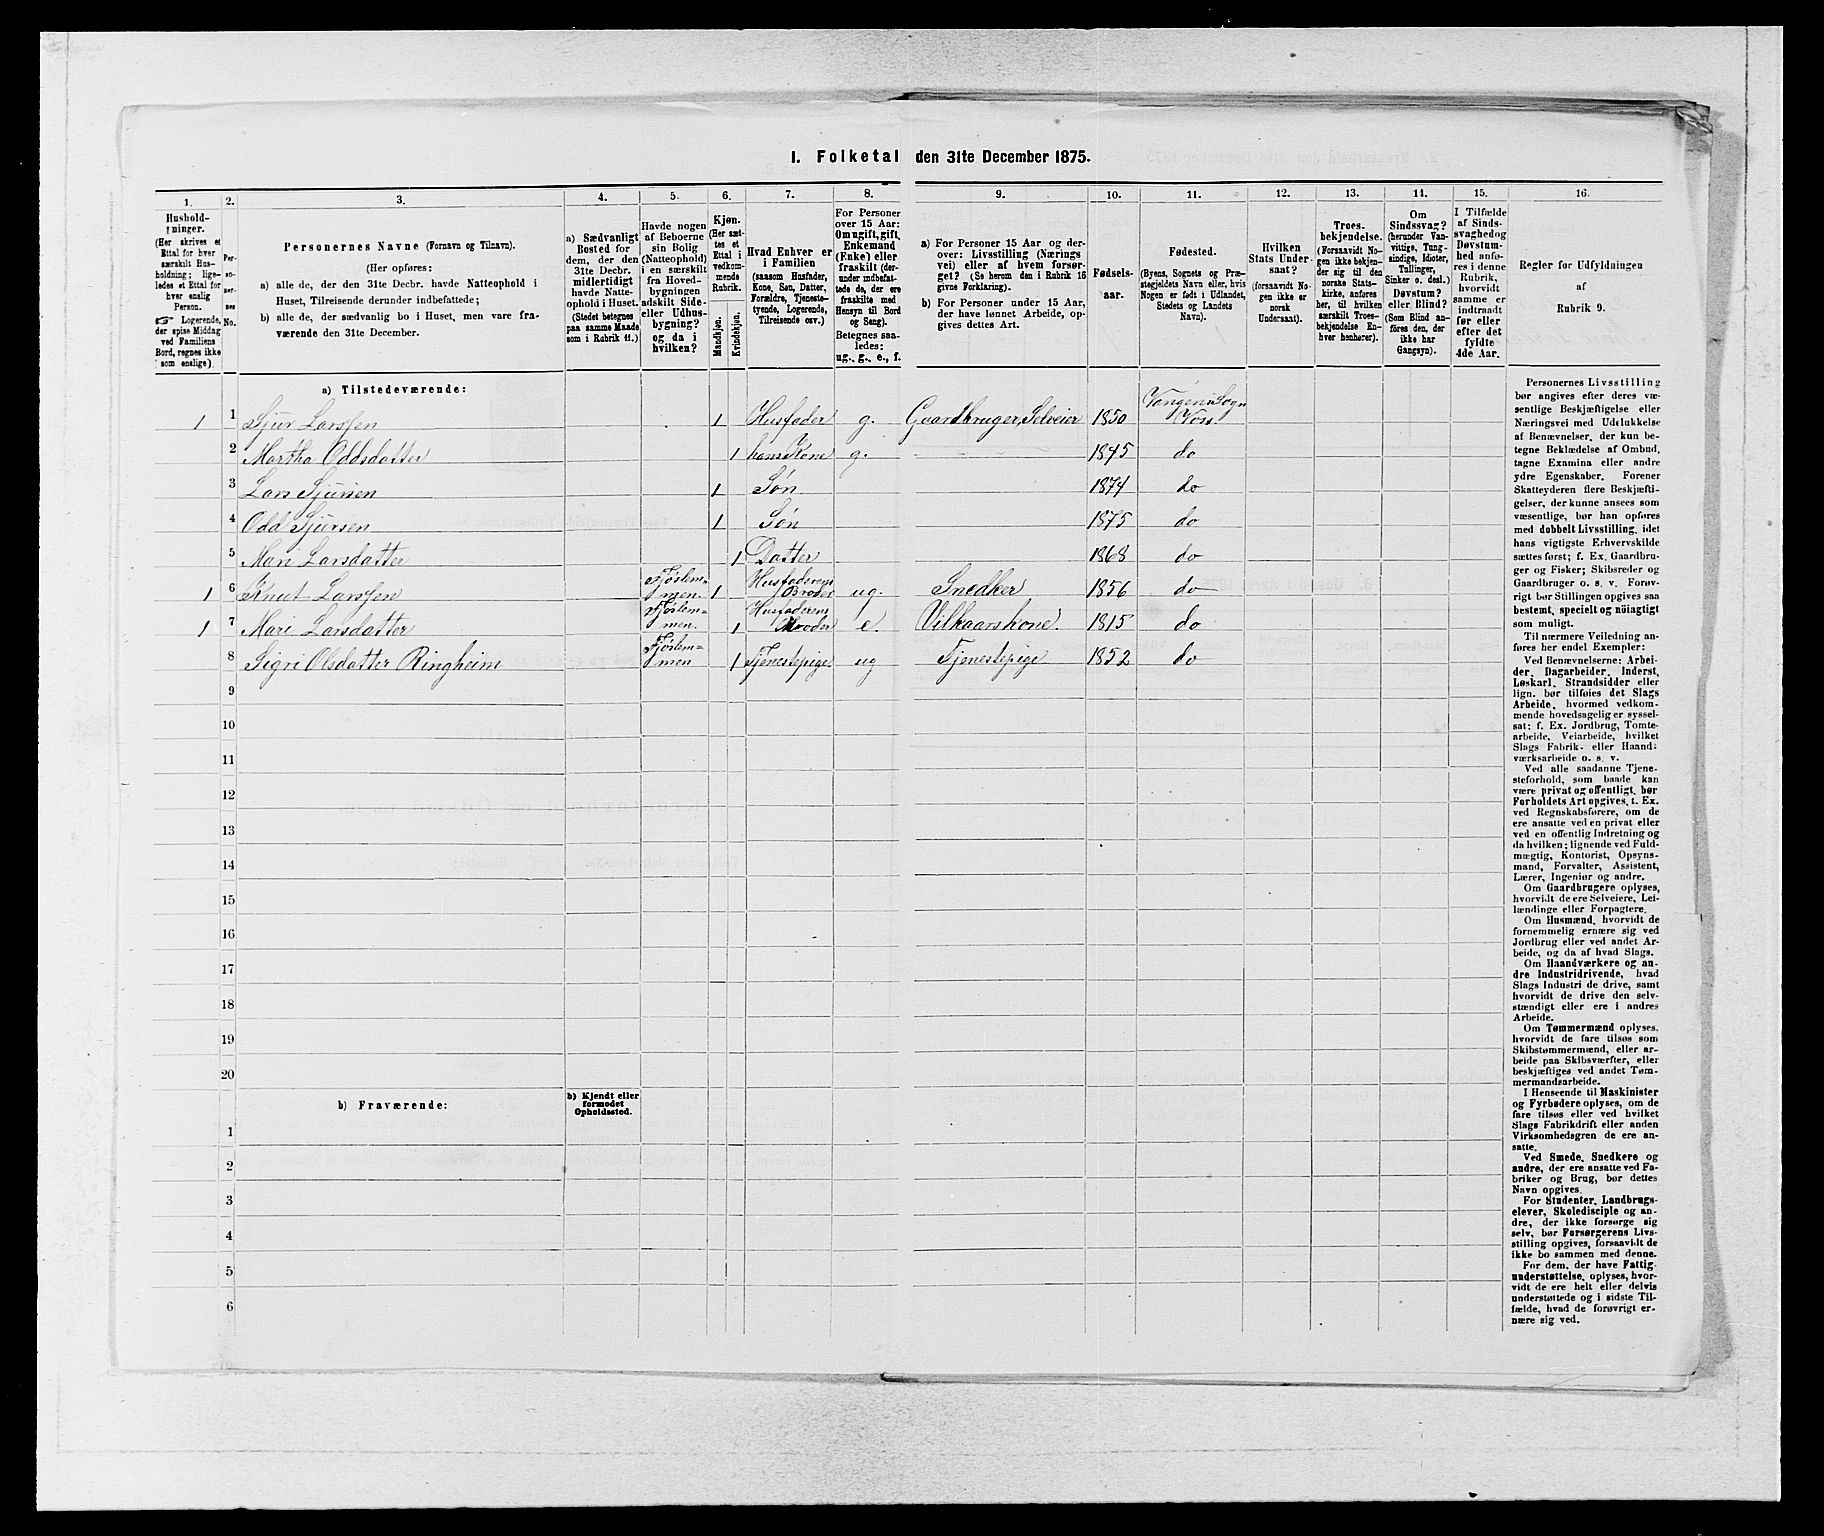 I. Folketal den 31te December 1875.
1. 2. 3. 4. 5. 6. 7. 8. 9. 10. 11. 12. 13. 14. 15. 16.
Hushold-
ninger.
(Her skrives et
Ettal for hver
særskilt Hus-
holdning; lige-
ledes et Ettal for
hver enslig
Person.
☞ Logerende,
der spise Middag
ved Familiens
Bord, regnes ikke
som enslige).
Per-
so-
ner-
nes
No.
Personernes Navne (Fornavn og Tilnavn).
(Her opføres:
a) alle de, der den 31te Decbr. havde Natteophold i
Huset, Tilreisende derunder indbefattede;
b) alle de, der sædvanlig bo i Huset, men vare fra-
værende den 31te December.
a) Sædvanligt
Bosted for
dem, der den
31te Decbr.
midlertidigt
havde Natte-
ophold i Huset.
(Stedet betegnes
paa samme Maade
som i Rubrik 11.)
Havde nogen
af Beboerne
sin Bolig
(Natteophold)
i en særskilt
fra Hoved-
bygningen
adskilt Side-
eller Udhus-
bygning?
og da i
hvilken?
Kjøn.
(Her sæt-
tes et
Ettal i
vedkom-
mende
Rubrik.
Mandkjøn.
Kvindekjøn.
Hvad Enhver er
i Familien
(saasom Husfader,
Kone, Søn, Datter,
Forældre, Tjeneste-
tyende, Logerende,
Tilreisende osv.)
For Personer
over 15 Aar:
Om ugift, gift,
Enkemand
(Enke) eller
fraskilt (der-
under indbefat-
tede de, der ere
fraskilte med
Hensyn til Bord
og Seng).
Betegnes saa-
ledes:
ug., g., e., f.
a) For Personer 15 Aar og der-
over: Livsstilling (Nærings
vei) eller af hvem forsør-
get? (Se herom den i Rubrik 16
givne Forklaring).
b) For Personer under 15 Aar,
der have lønnet Arbeide, op-
gives dettes Art.
Fødsels-
aar.
Fødested.
(Byens, Sognets og Præ-
stegjeldets Navn eller, hvis
Nogen er født i Udlandet,
Stedets og Landets
Navn).
Hvilken
Stats Under-
saat?
(forsaavidt No-
gen ikke er
norsk
Undersaat).
Troes-
bekjendelse.
(Forsaavidt No-
gen ikke bekjen-
der sig til den
norske Stats-
kirke, anføres
her, til hvilken
særskilt Troes-
bekjendelse En-
hver henhører).
Om
Sindssvag?
(herunder Van-
vittige, Tung-
sindige, Idioter,
Tullinger,
Sinker o. desl.)
Døvstum?
eller Blind?
(Som Blind an-
føres den, der
ikke har
Gangsyn).
I Tilfælde
af Sinds-
svaghed og
Døvstum-
hed anfø-
res i denne
Rubrik,
hvorvidt
samme er
indtraadt
før eller
efter det
fyldte
4de Aar.
Regler for Udfyldningen
af
Rubrik 9.
a) Tilstedeværende:
1 1 Sjur Larssen 1 Husfader g. Gaardbruger, Selveier 1850 Vangens Sogn Vors
2 Martha Oddsdatter 1 hans Kone g. 1845 do
3 Lars Sjursen 1 Søn 1874 do
4 Odd Sjursen 1 Søn 1875 do
5 Mari Larsdatter 1 Datter 1868 do
1 6 Knut Larssen Fjøslem-men. 1 Husfaderens Broder ug. Snedker 1856 do
1 7 Mari Larsdatter Fjøslem-men. 1 Husfaderens Moder e. Vilkaarskone. 1815 do
8 Sigri Olsdatter Ringheim Fjøslem-men 1 Tjenestepige ug Tjenestepige 1852 do
9
10
11
12
13
14
15
16
17
18
19
20
b) Fraværende:
b) Kjendt eller
formodet
Opholdssted.
1
2
3
4
5
6
Personernes Livsstilling
bør angives efter deres væ-
sentlige Beskjæftigelse eller
Næringsvei med Udelukkelse
af Benævnelser, der kun be-
tegne Beklædelse af Ombud,
tagne Examina eller andre
ydre Egenskaber. Forener
Skatteyderen flere Beskjæfti-
gelser, der kunne ansees som
væsentlige, bør han opføres
med dobbelt Livsstilling, idet
hans vigtigste Erhvervskilde
sættes først; f. Ex. Gaardbru-
ger og Fisker; Skibsreder og
Gaardbruger o. s. v. Forøv-
rigt bør Stillingen opgives saa
bestemt, specielt og nøiagtigt
som muligt.
Til nærmere Veiledning an-
føres her endel Exempler:
Ved Benævnelserne: Arbei-
der, Dagarbeider, Inderst,
Løskarl, Strandsidder eller
lign. bør tilføies det Slags
Arbeide, hvormed vedkom-
mende hovedsagelig er syssel-
sat; f. Ex. Jordbrug, Tomte-
arbeide, Veiarbeide, hvilket
Slags Fabrik- eller Haand-
værksarbeide o. s. v.
Ved alle saadanne Tjene-
steforhold, som baade kan
være privat og offentligt, bør
Forholdets Art opgives, t. Ex.
ved Regnskabsførere, om de
ere ansatte ved en privat eller
ved en offentlig Indretning og
da hvilken; lignende ved Fuld-
mægtig, Kontorist, Opsyns-
mand, Forvalter, Assistent,
Lærer, Ingeniør og andre.
Om Gaardbrugere oplyses,
hvorvidt de ere Selveiere, Lei-
lændinge eller Forpagtere.
Om Husmænd, hvorvidt de
fornemmelig ernære sig ved
Jordbrug eller ved andet Ar-
beide, og da af hvad Slags.
Om Haandværkere og an-
dre Industridrivende, hvad
Slags Industri de drive, samt
hvorvidt de drive den selv-
stændigt eller ere i andres
Arbeide.
Om Tømmermænd oplyses,
hvorvidt de fare tilsøs som
Skibstømmermænd, eller ar-
beide paa Skibsværfter, eller
beskjæftiges ved andet Tøm-
mermandsarbeide.
I Henseende til Maskinister
og Fyrbødere oplyses, om de
fare tilsøs eller ved hvilket
Slags Fabrikdrift eller anden
Virksomhedsgren de ere an-
satte.
Ved Smede, Snedkere og
andre, der ere ansatte ved Fa-
briker og Brug, bør dettes
Navn opgives.
For Studenter, Landbrugs-
elever, Skoledisciple og an-
dre, der ikke forsørge sig
selv, bør Forsørgerens Livs-
stilling opgives, forsaavidt de
ikke bo sammen med denne.
For dem, der have Fattig-
understøttelse, oplyses, hvor-
vidt de ere helt eller delvis
understøttede og i sidste Til-
fælde, hvad de forøvrigt er-
nære sig ved.